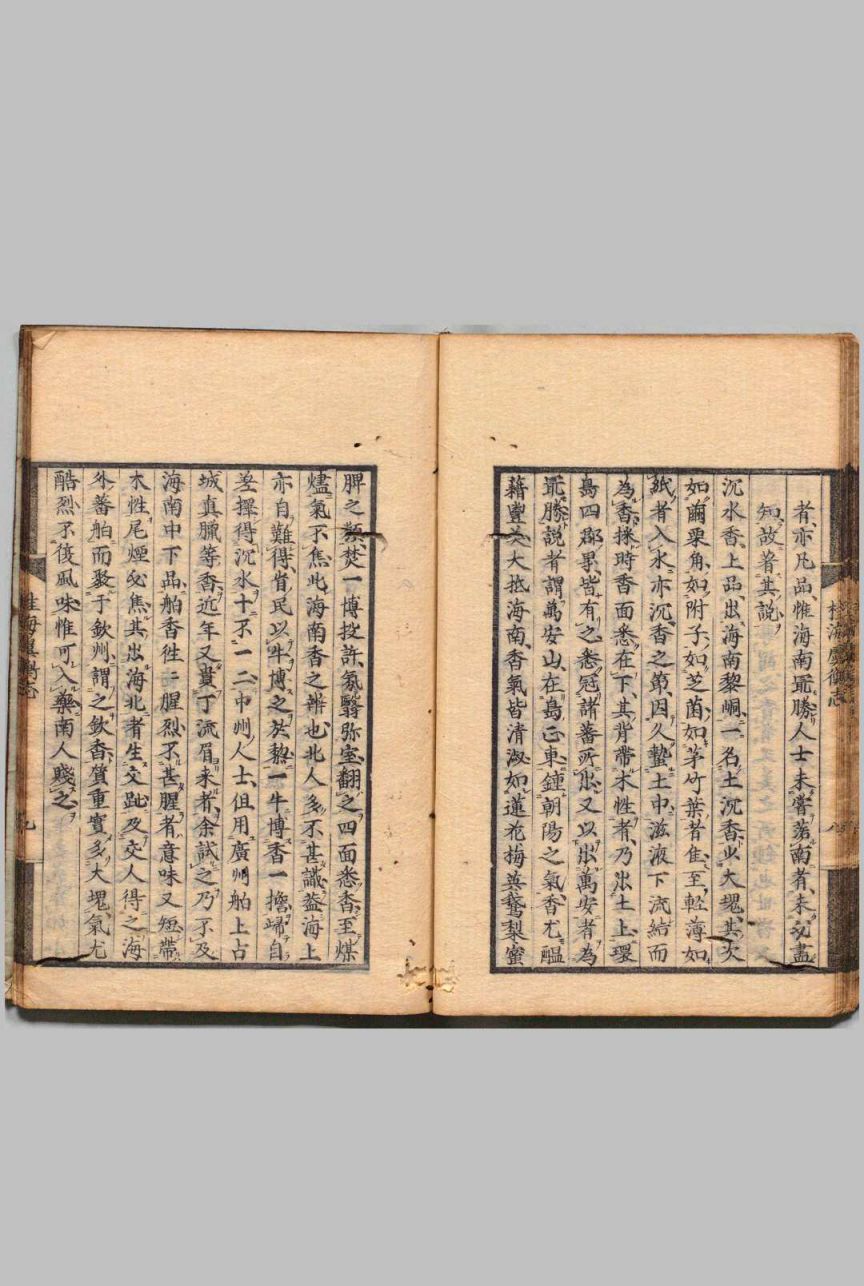 者亦凡品惟海南最勝人士未嘗落南者未必盡
知故著其説
沉水香上品出海南黎峒一名土沉香少大塊其次
如繭栗角如附子如芝菌如茅竹葉者佳至輕薄如
紙者入水亦沉香之節因久蟄土中滋液下流結而
為香採時香面悉在下其背帶木性者乃出土上環
島四郡界皆有之悉冠諸蕃所出又以出萬安者為
最勝説者謂萬安山在島正東鍾朝陽之氣香尤醞
藉豐美大抵海南香氣皆清淑如蓮花梅英鵞梨蜜
脾之類焚一博投許氛翳弥室翻之四面悉香至煤
燼氣不焦此海南香之辨也北人多不甚識蓋海上
亦自難得省民以牛博之於黎一牛博香一擔歸自
差擇得沉水十不一二中州人士但用廣州舶上占
城真臘等香近年又貴丁流眉来者余試之乃不及
海南中下品舶香往二腥烈不甚腥者意味又短帶
木性尾煙必焦其出海北者生交趾及交人得之海
外蕃舶而聚于欽州謂之欽香質重實多大塊氣尤
酷烈不復風味惟可入藥南人賤之